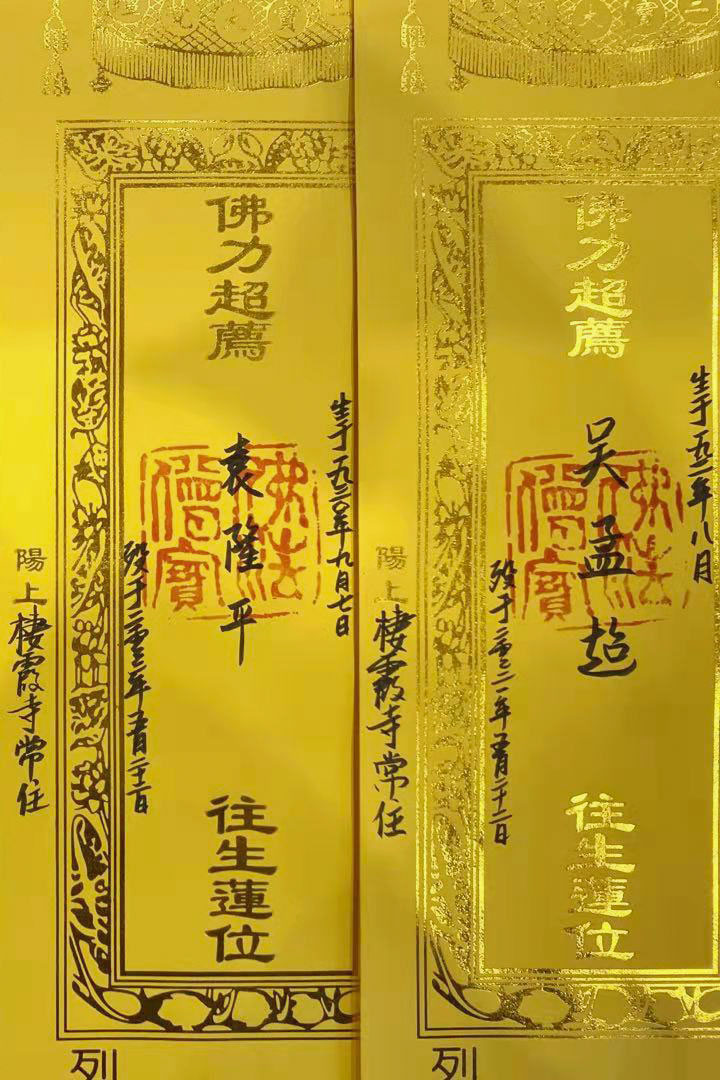 佛力超薦
生于一九三〇年九月七日
袁隆平
殁于二零二一年五月二十二日
往生蓮位
佛法僧寶
陽上
棲霞寺常住
列
佛力超薦
生于一九二二年八月
吴孟超
殁于二零二一年五月二十二日
往生蓮位
佛法僧寶
陽上
棲霞寺常住
列